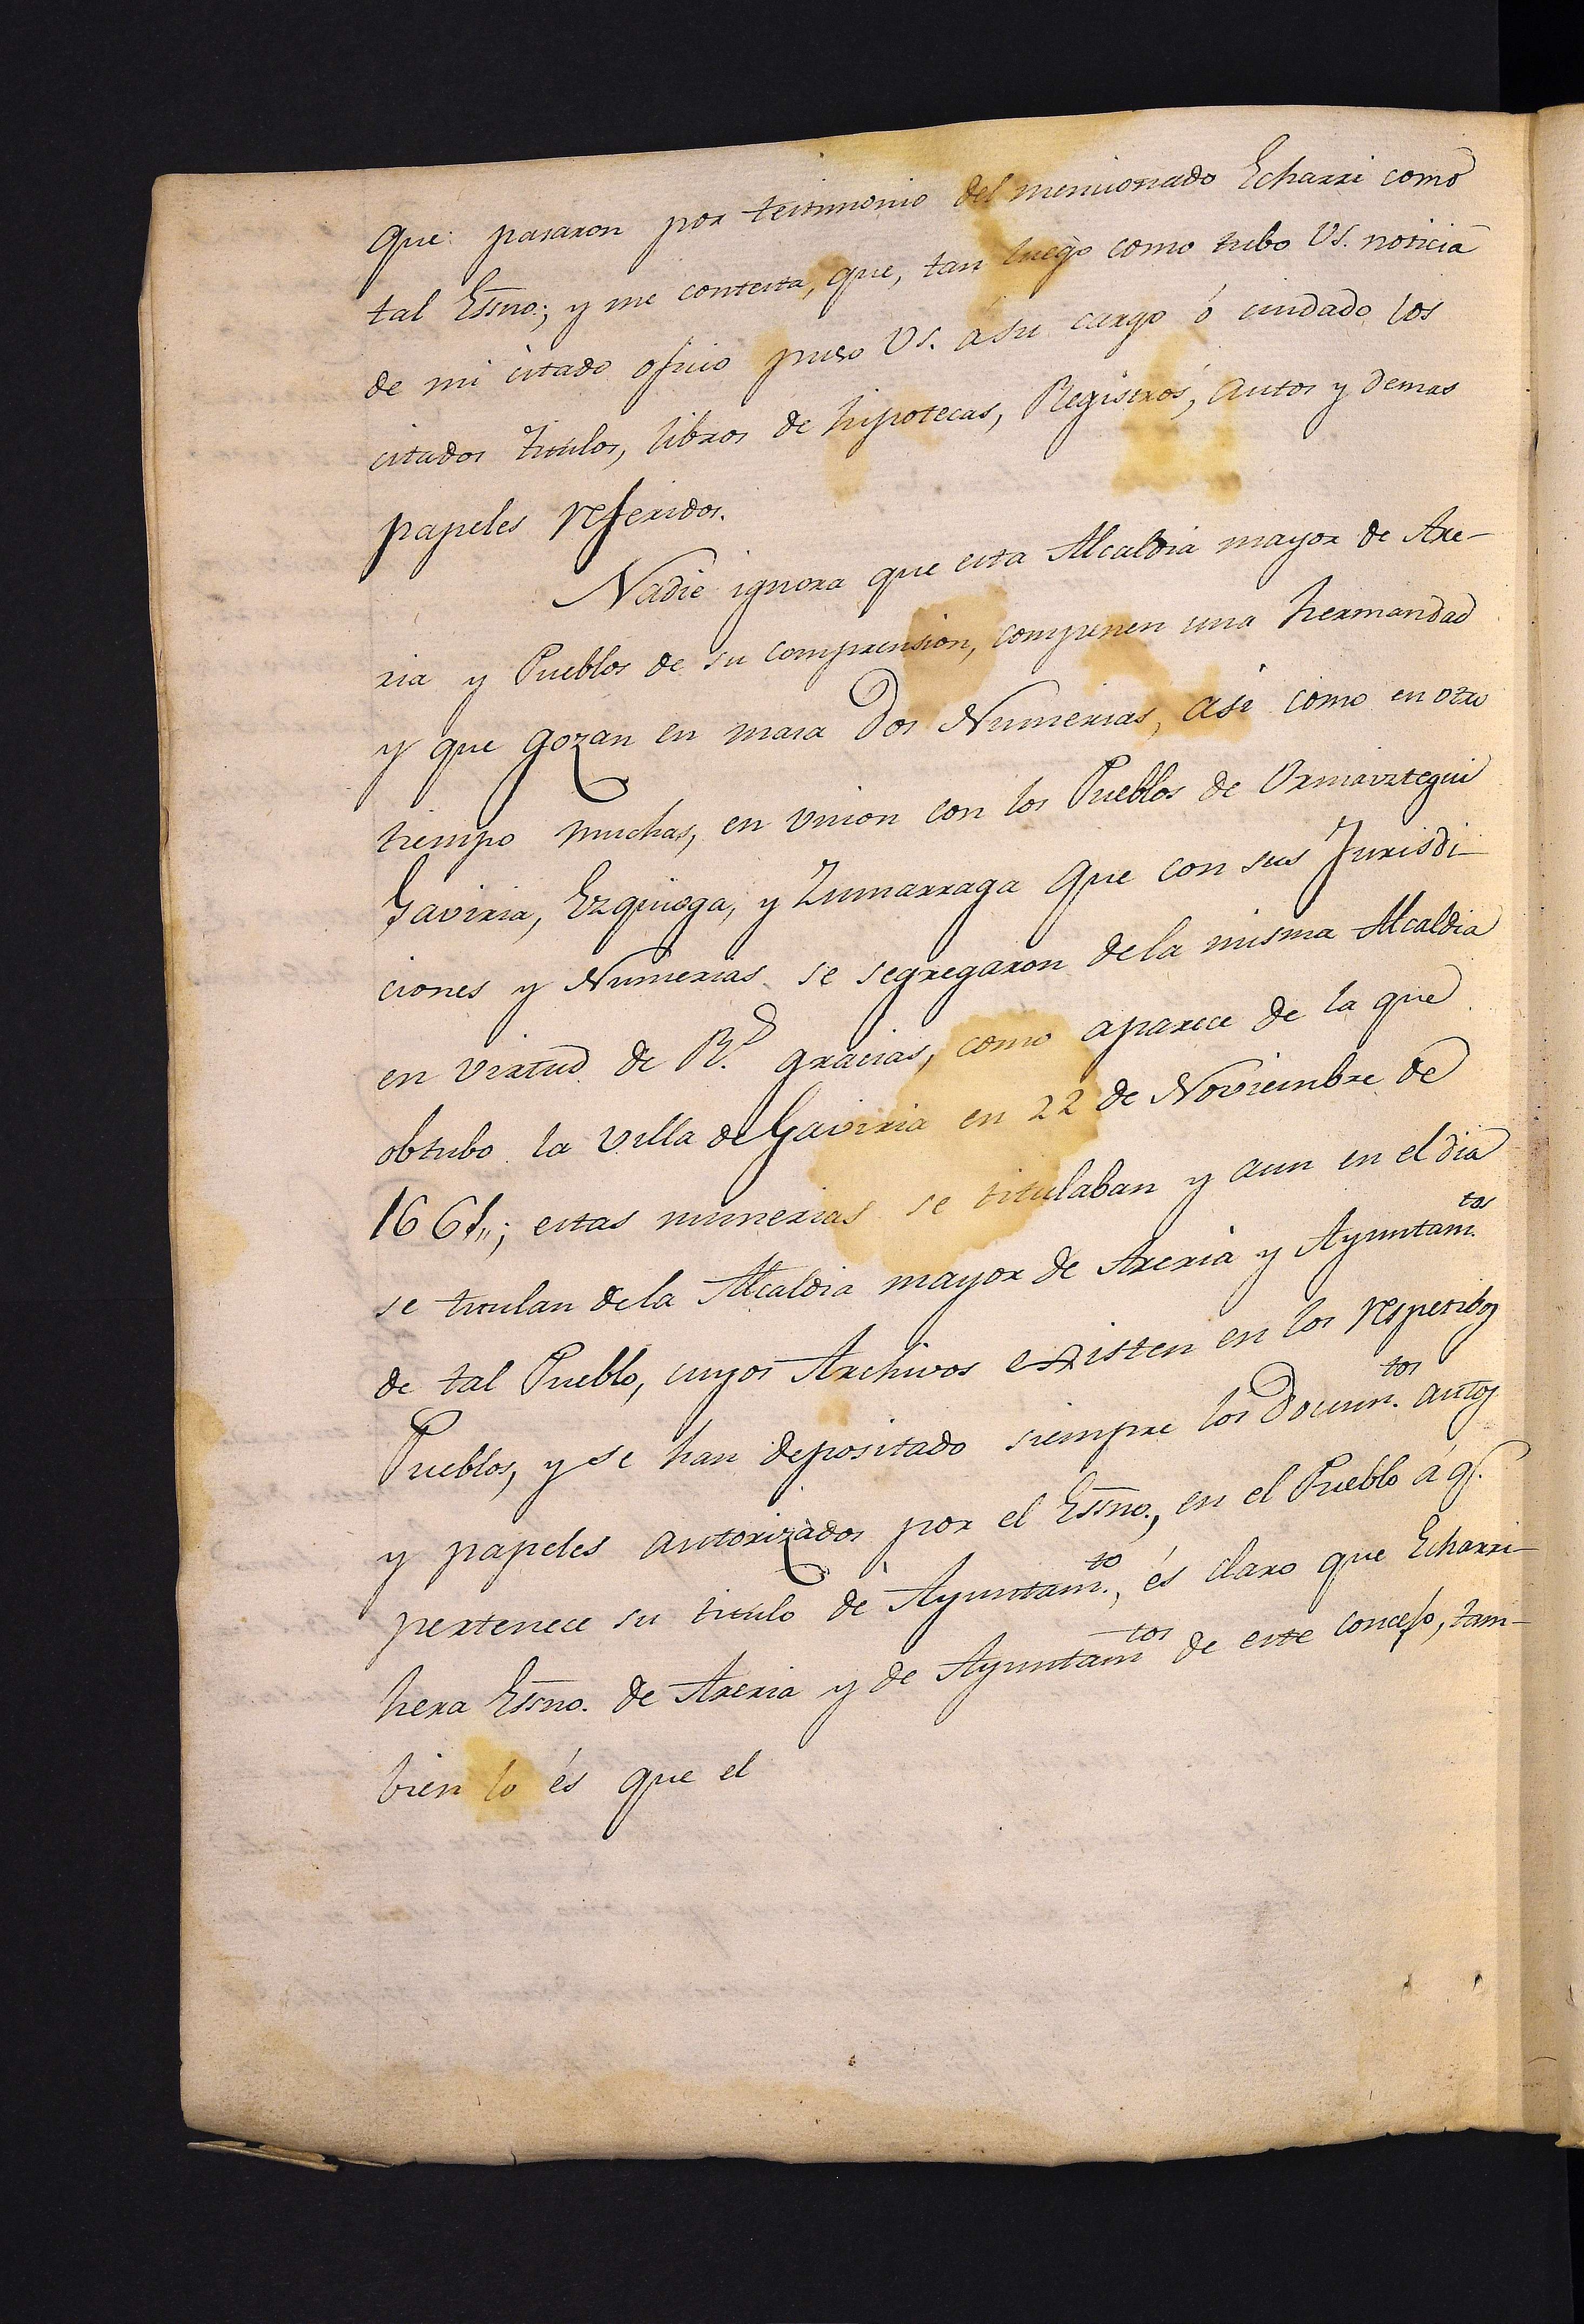 que pasaron por testimonio del mencionado Echarri como
tal Essno.; y me contesta, que, tan luego como tubo VS. noticia
de mi citado oficio puso VS. á su cargo ó cuidado los
citados titulos, libros de hipotecas, Registros, autos y demas
papeles referidos.
Nadie ignora que esta Alcaldia mayor de Are-
ria y Pueblos de su comprension, componen una hermandad
y que gozan en masa dos Numerias, asi como en otro
tiempo muchas, en union con los Pueblos de Ormaiztegui
Gaviria, Ezquioga, y Zumarraga que con sus Jurisdi-
ciones y Numerias se segregaron de la misma Alcaldia
en virtud de Rs. gracias, como aparece de la que
obtubo la villa de Gaviria en 22 de Noviembre de
1661,,; estas numerias se titulaban y aun en el dia
se titulan de la Alcaldia mayor de Areria y Ayuntam.tos
de tal Pueblo, cuyos Archivos existen en los respetibos
Pueblos, y se han depositado siempre los Docum.tos autos
y papeles autorizados por el Essno., en el Pueblo á q.
pertenece su titulo de Ayuntam.to, és claro que Echarri
hera Essno. de Areria y de Ayuntamtos de este concejo, tam-
bien lo és que el